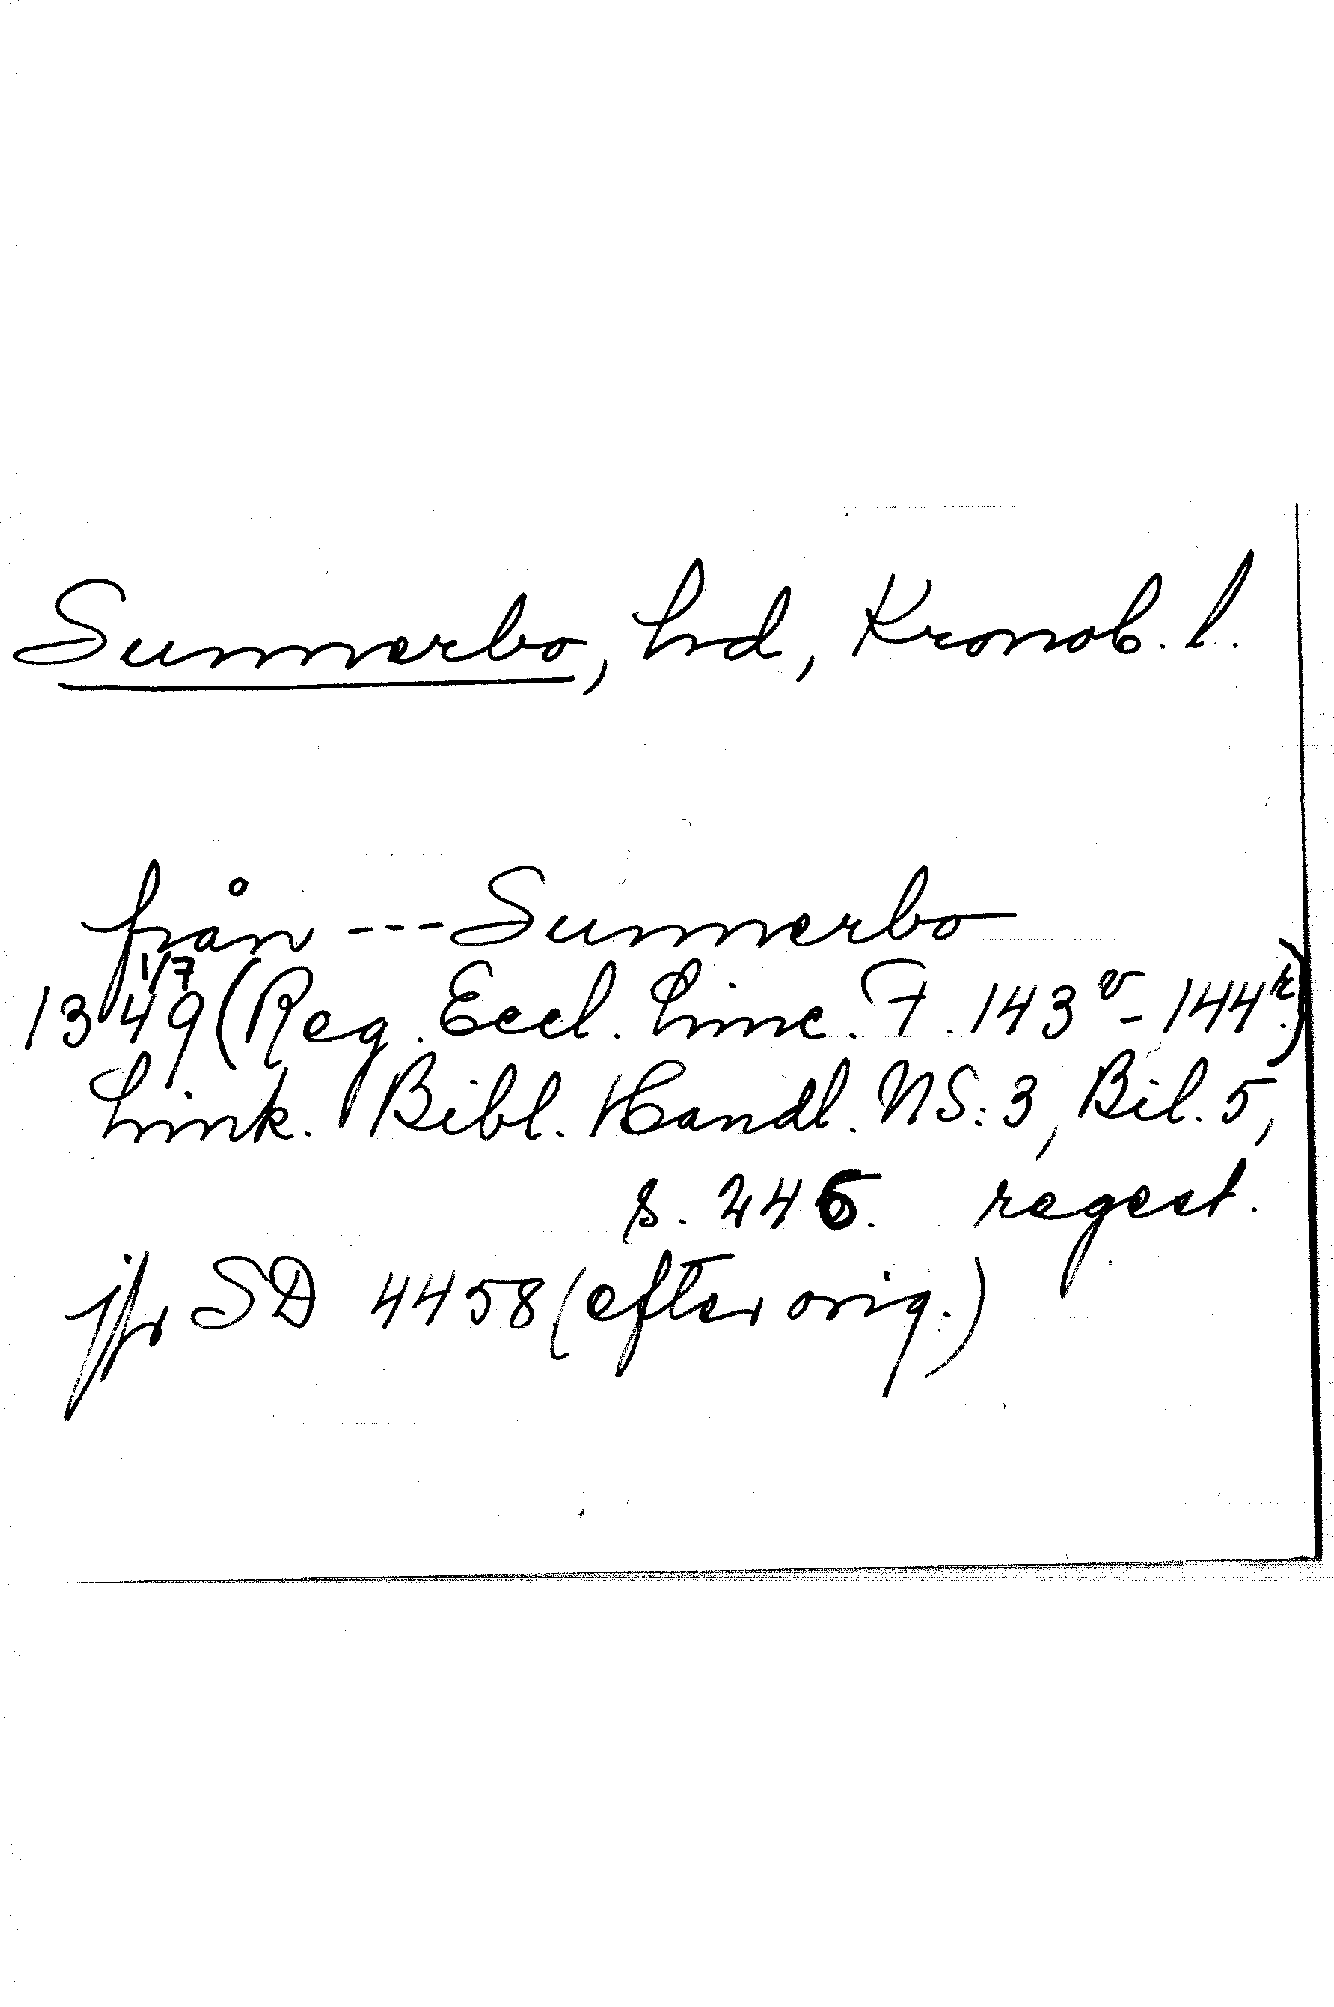 Sunnerbo, hd, Kronob. l.
från --- Sunnerbo
1/7
1349 (Reg. Eccl. Linc. F. 143v - 144r.)
Link. Bibl. Handl. NS: 3, Bil. 5,
s. 246. regest.
jfr SD 4458 (efter orig.)